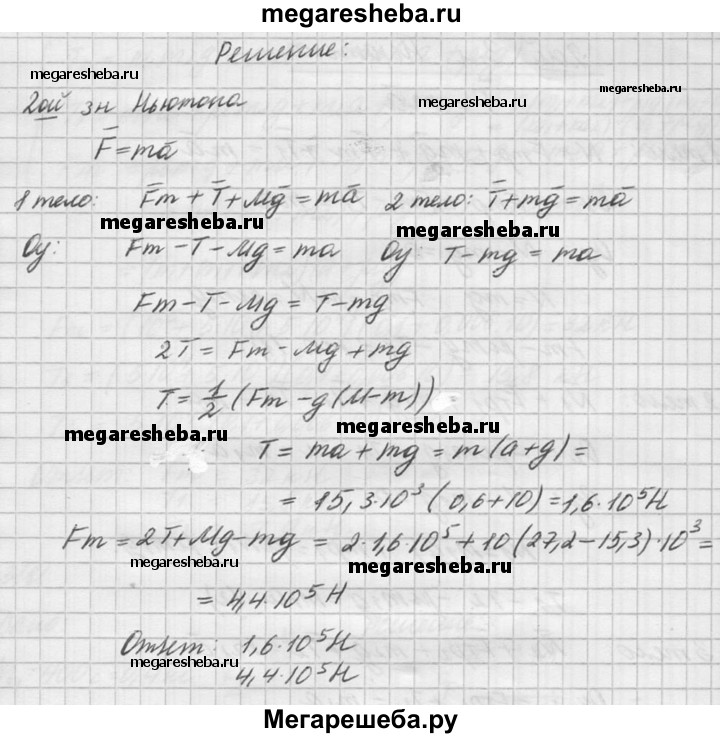 megaresheba.ru
Решение:
megaresheba.ru
megaresheba.ru
megaresheba.ru
2ой зн Ньютона
F̄ = mā
1 тело: F̄m + T̄ + Mḡ = mā 2 тело: T̄ + mḡ = mā
megaresheba.ru
megaresheba.ru
Oy: Fm - T - Mg = ma Oy: T - mg = ma
Fm - T - Mg = T - mg
2T = Fm - Mg + mg
T = 1/2 (Fm - g(M - m))
megaresheba.ru
megaresheba.ru
T = ma + mg = m(a + g) =
= 15,3·10³ (0,6 + 10) = 1,6·10⁵ Н
Fm = 2T + Mg - mg = 2·1,6·10⁵ + 10(27,2 - 15,3)·10³ =
megaresheba.ru
megaresheba.ru
= 4,4·10⁵ Н
Ответ: 1,6·10⁵ Н
megaresheba.ru
megaresheba.ru
4,4·10⁵ Н
Мегарешеба.ру